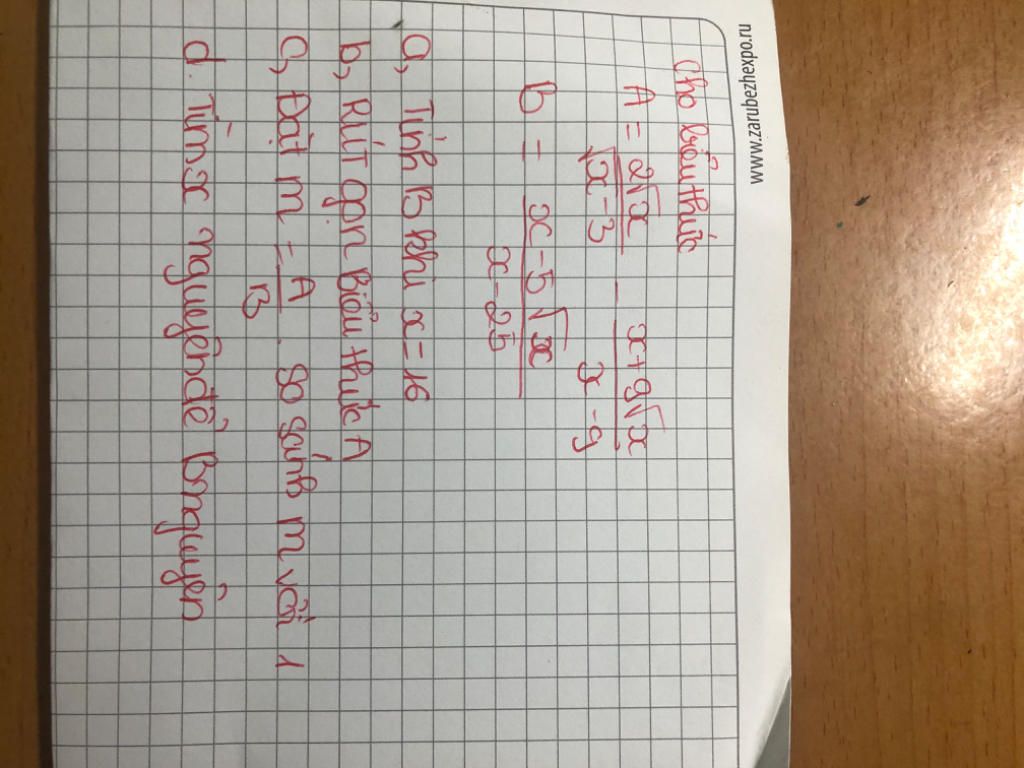 www.zarubezhexpo.ru
Cho biểu thức
A = 2√x / √x - 3 - x + 9√x / x - 9
B = x - 5√x / x - 25
a, Tính B khi x = 16
b, Rút gọn biểu thức A
c, Đặt m = A / B . so sánh m với 1
d. Tìm x nguyên để B nguyên